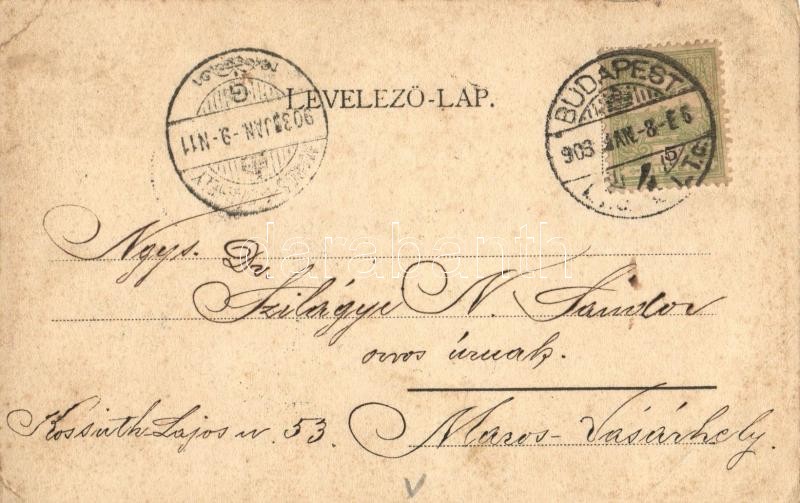 LEVELEZŐ-LAP.
903 JAN.-9.-N11
BUDAPEST
903 JAN.-8-E6
darabanth
Ngys. Dr.
Szilágyi N. Sándor
orvos úrnak.
Kossuth Lajos u. 53. Maros-Vásárhely.
V